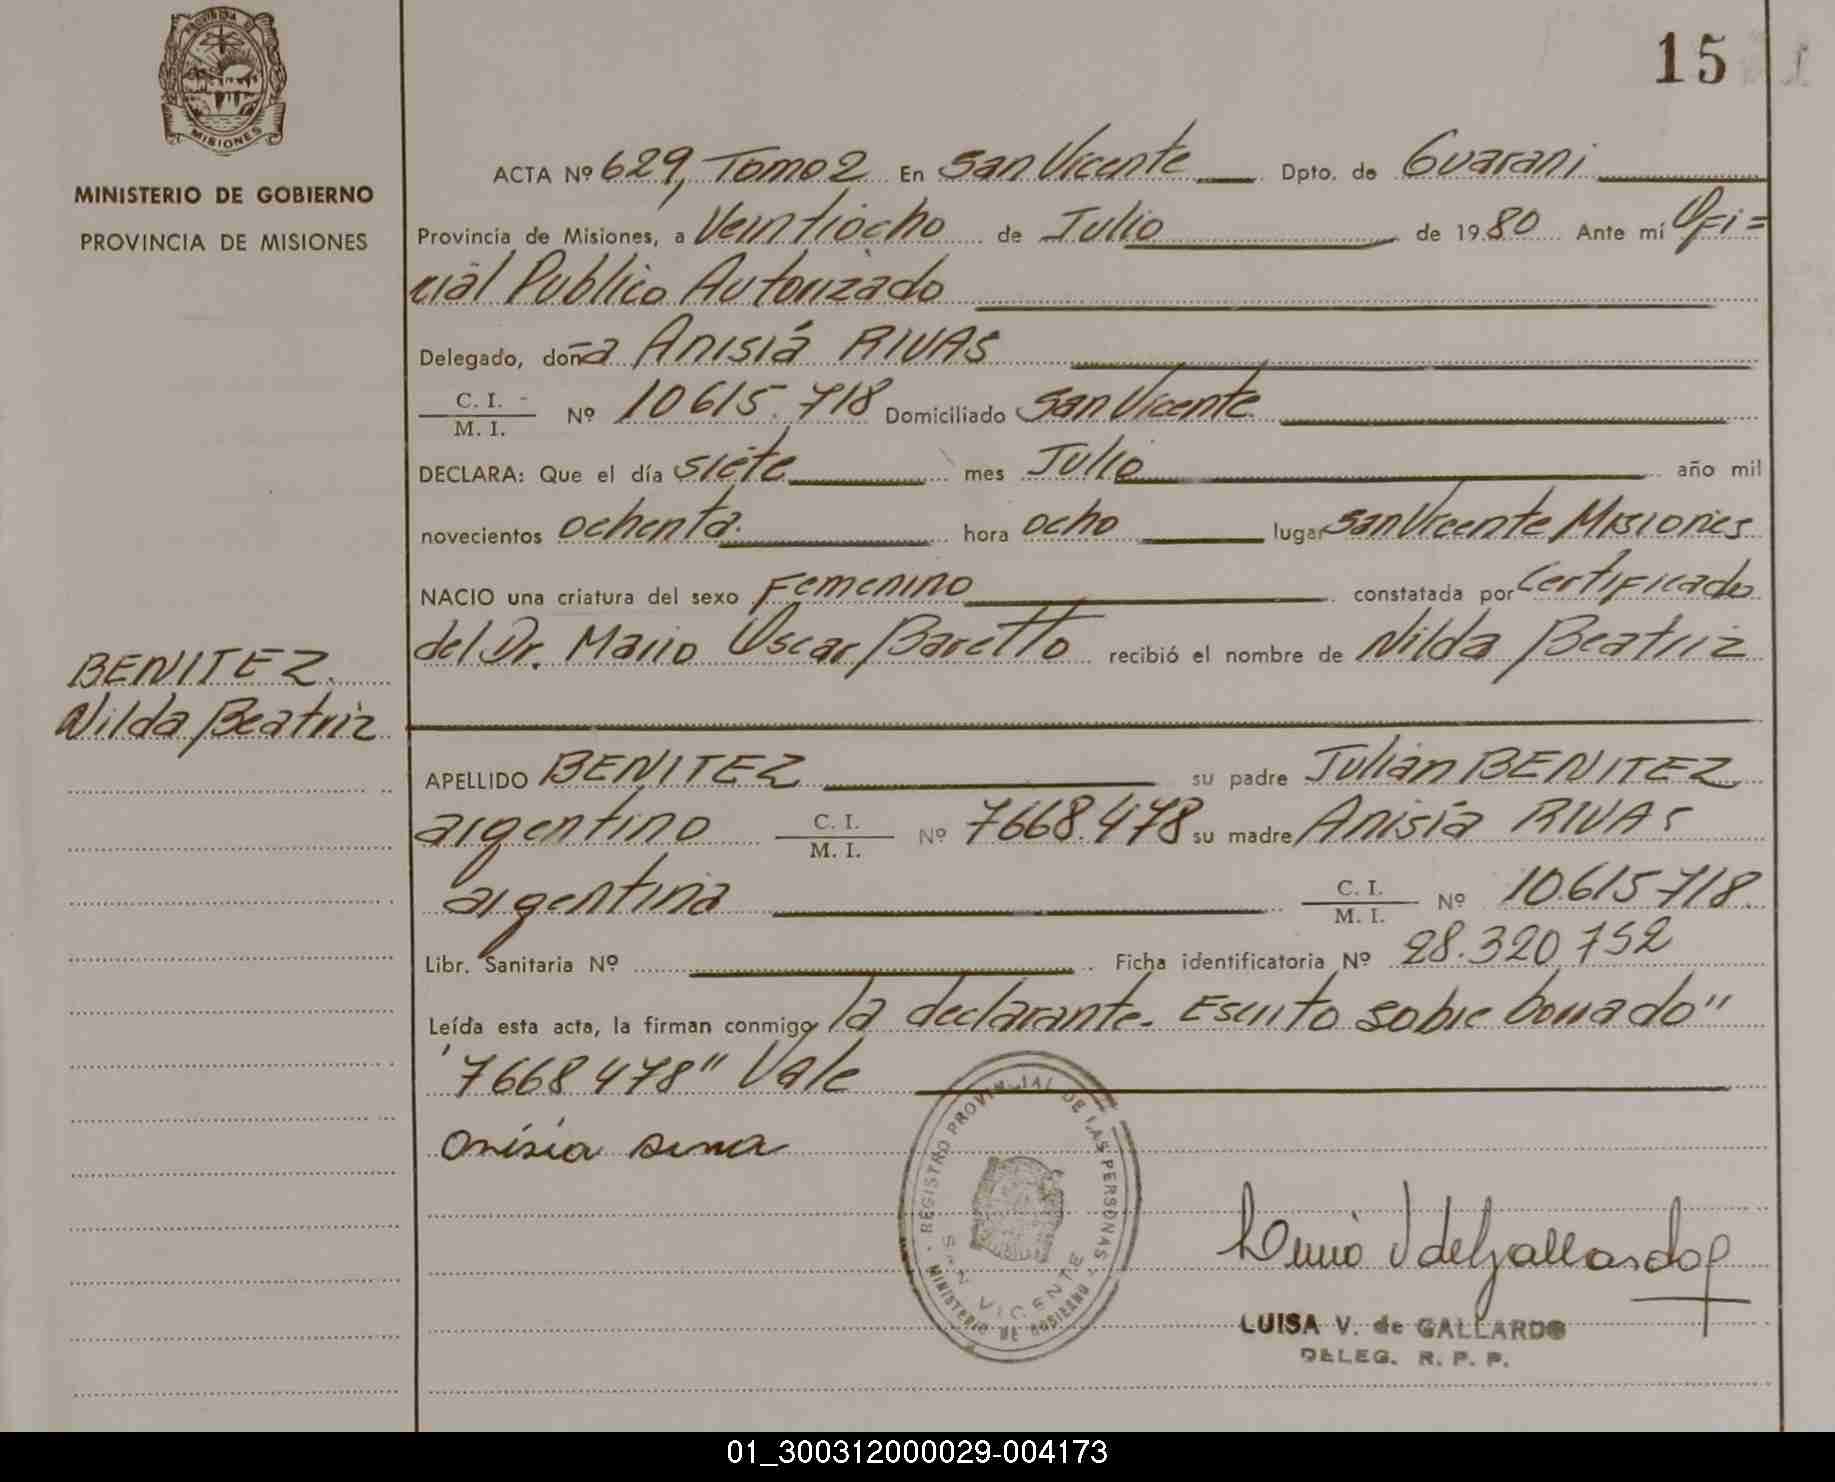 15
PROVINCIA DE
MISIONES
MINISTERIO DE GOBIERNO
PROVINCIA DE MISIONES
ACTA Nº 629, Tomo 2 En San Vicente Dpto. de Guarani
Provincia de Misiones, a Veintiocho de Julio de 1980 Ante mí Ofi=
cial Publico Autorizado
Delegado, doña Anisia RIVAS
C. I.
M. I. Nº 10615.718 Domiciliado San Vicente
DECLARA: Que el día siete mes Julio año mil
novecientos ochenta. hora ocho lugar San Vicente Misiones
NACIO una criatura del sexo Femenino constatada por Certificado
del Dr. Mario Oscar Baretto recibió el nombre de Nilda Beatriz
BENITEZ.
Nilda Beatriz
APELLIDO BENITEZ su padre Julian BENITEZ
argentino C. I.
M. I. Nº 7668.478 su madre Anisia RIVAS
argentina C. I.
M. I. Nº 10.615718.
Libr. Sanitaria Nº Ficha identificatoria Nº 28.320752
Leída esta acta, la firman conmigo la declarante. Escrito sobre borrado"
"7668478" Vale
REGISTRO PROVINCIAL DE LAS PERSONAS
SAN VICENTE
MINISTERIO DE GOBIERNO
LUISA V. de GALLARDO
DELEG. R. P. P.
01_300312000029-004173